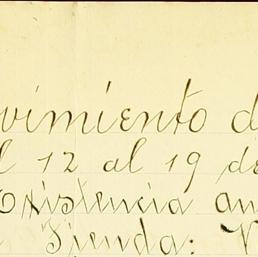 vimiento d
l 12 al 19 de
Existencia an
Tienda: V